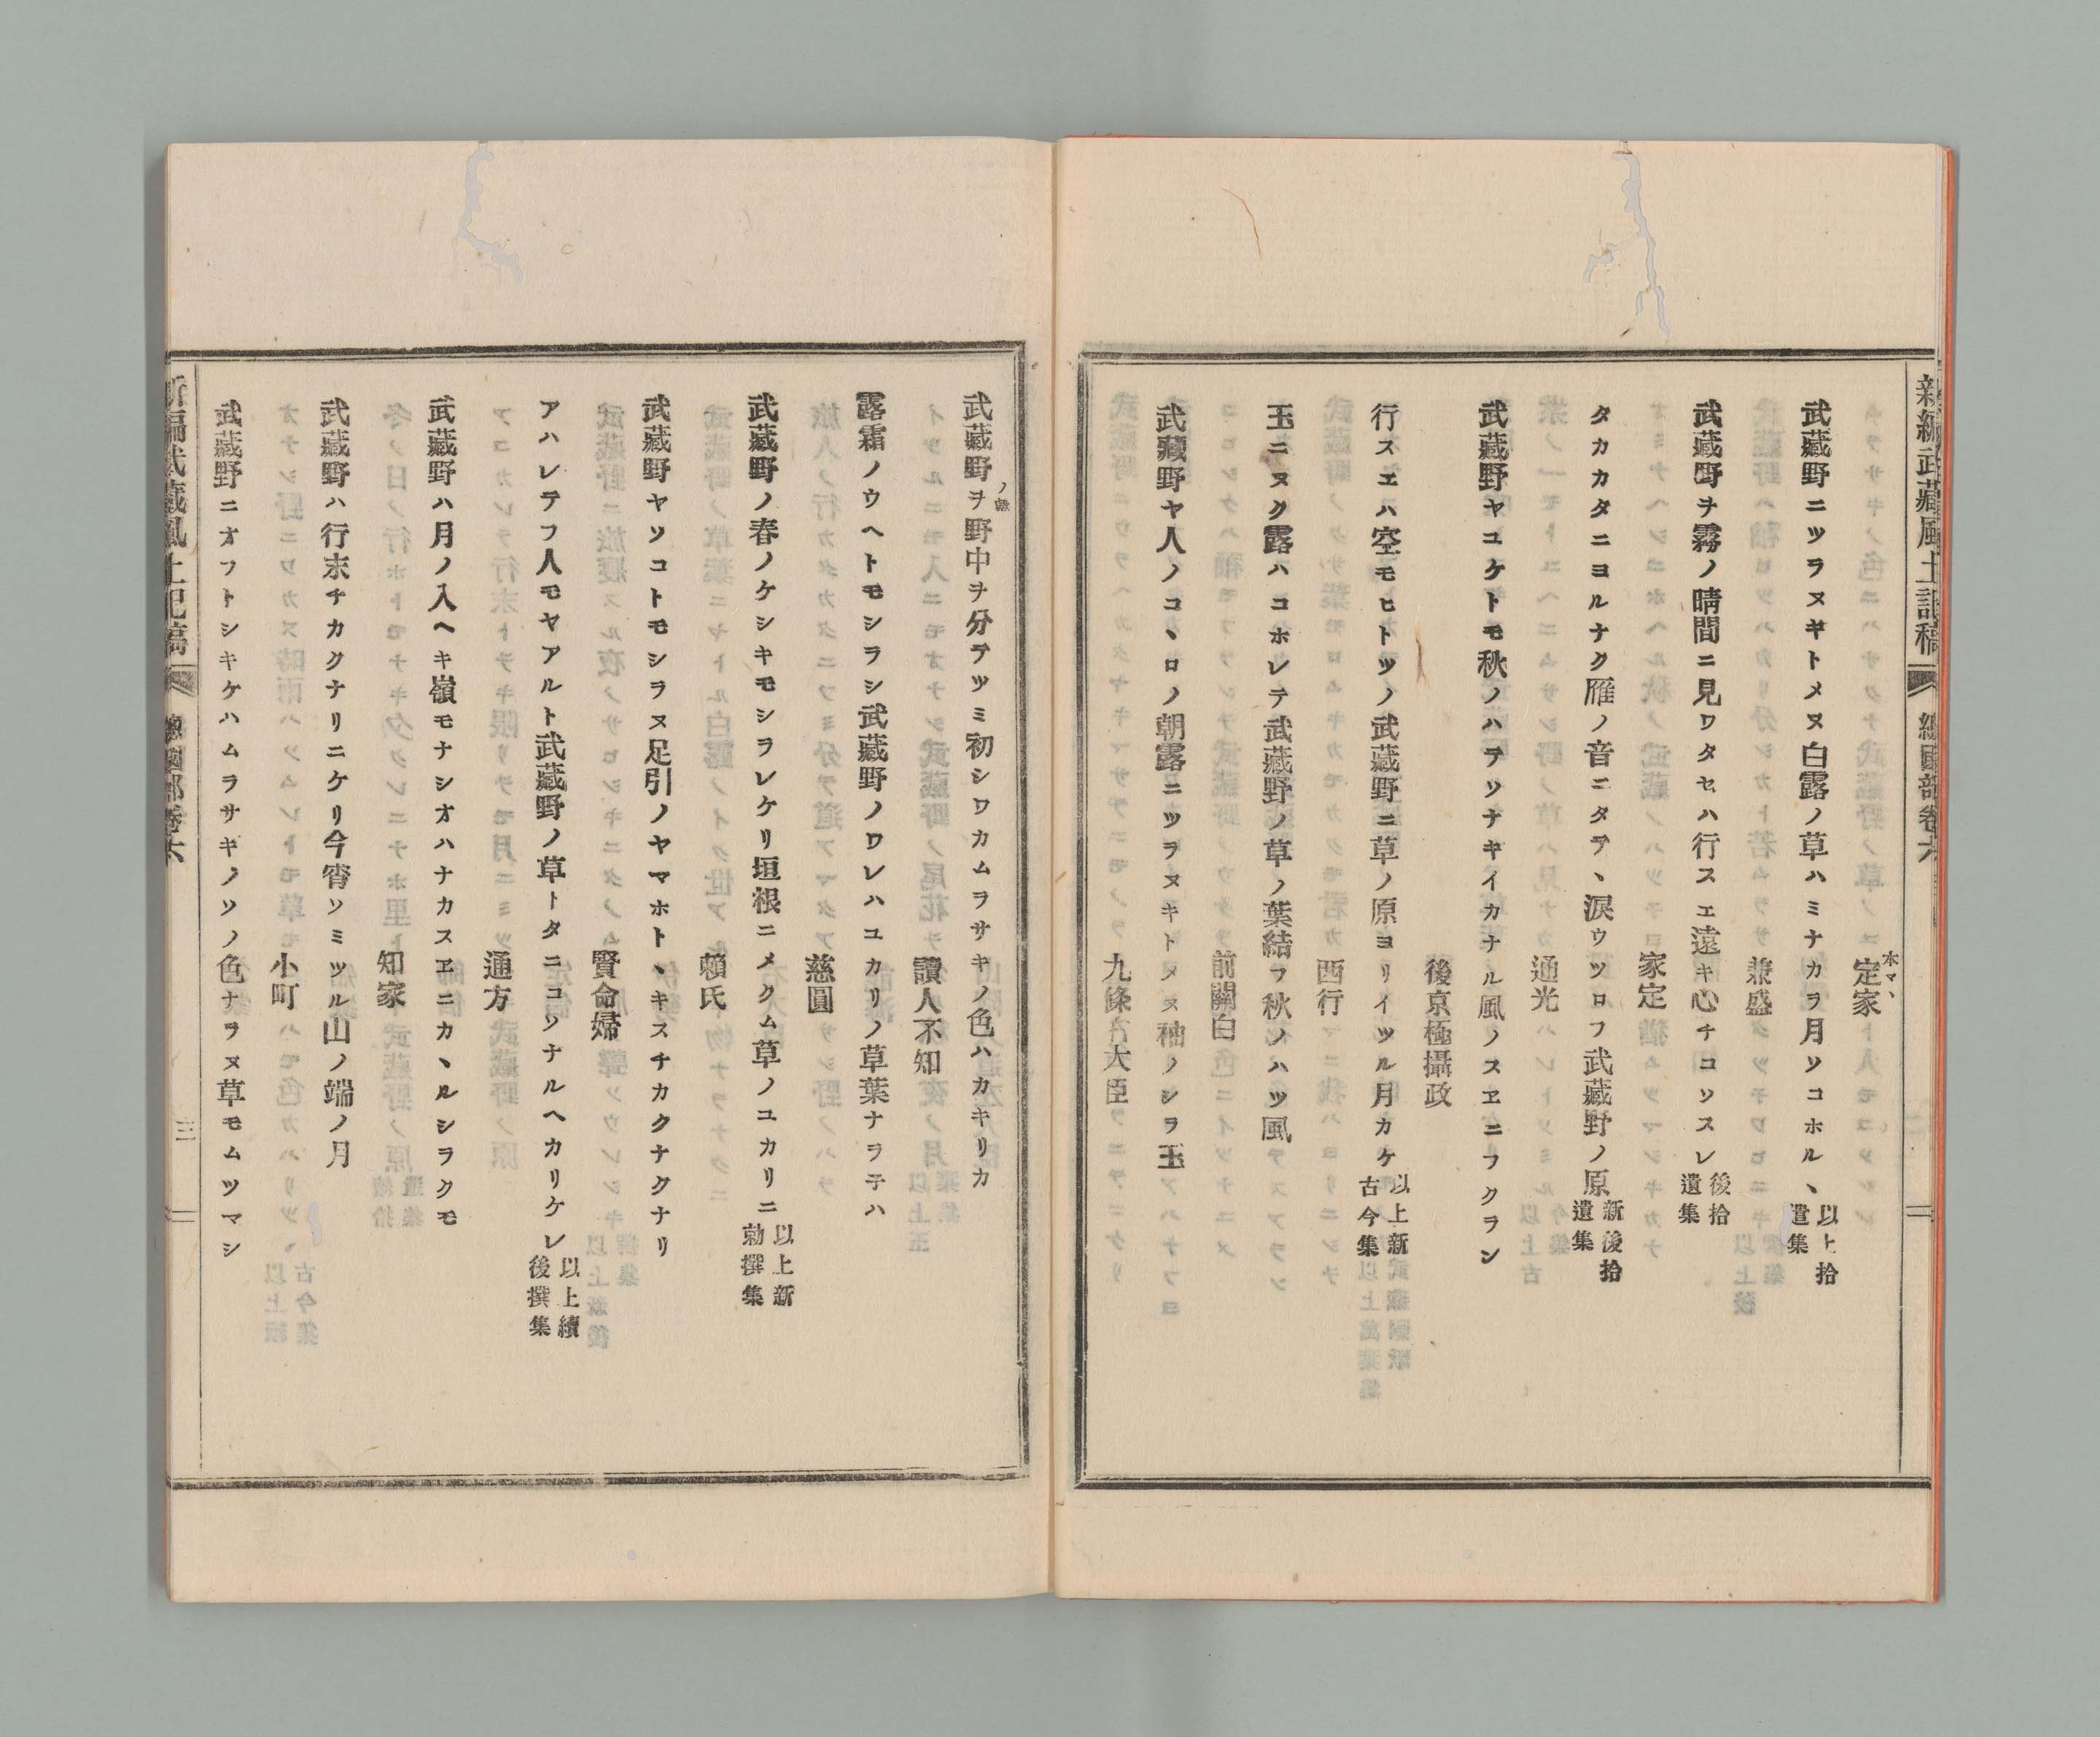 新編武藏風土記稿 總國部卷六 二
定家 本マヽ
武藏野ニツラヌキトメヌ白露ノ草ハミナカヲ月ソコホルヽ 以上拾遺集
兼盛
武藏野ヲ霧ノ晴間ニ見ワタセハ行スエ遠キ心チコソスレ 後拾遺集
家定
タカカタニヨルナク雁ノ音ニタテヽ涙ウツロフ武藏野ノ原 新後拾遺集
通光
武藏野ヤユケトモ秋ノハテソナキイカナル風ノスヱニフクラン
後京極攝政
行スヱハ空モヒトツノ武藏野ニ草ノ原ヨリイツル月カケ 以上新古今集
西行
玉ニヌク露ハコホレテ武藏野ノ草ノ葉結フ秋ノハツ風
前關白
武藏野ヤ人ノコヽロノ朝露ニツラヌキトメヌ袖ノシラ玉
九條右大臣
武藏野ヲ野中ヲ分テツミ初シワカムラサキノ色ハカキリカ
ノ歟
讀人不知
露霜ノウヘトモシラシ武藏野ノワレハユカリノ草葉ナラテハ
慈圓
武藏野ノ春ノケシキモシラレケリ垣根ニメクム草ノユカリニ 以上新勅撰集
賴氏
武藏野ヤソコトモシラヌ足引ノヤマホトヽキスチカクナクナリ
賢命婦
アハレテフ人モヤアルト武藏野ノ草トタニコソナルヘカリケレ 以上續後撰集
通方
武藏野ハ月ノ入ヘキ嶺モナシオハナカスヱニカヽルシラクモ
知家
武藏野ハ行末チカクナリニケリ今宵ソミツル山ノ端ノ月
小町
武藏野ニオフトシキケハムラサキノソノ色ナラヌ草モムツマシ
新編武藏風土記稿 總國部卷六 三